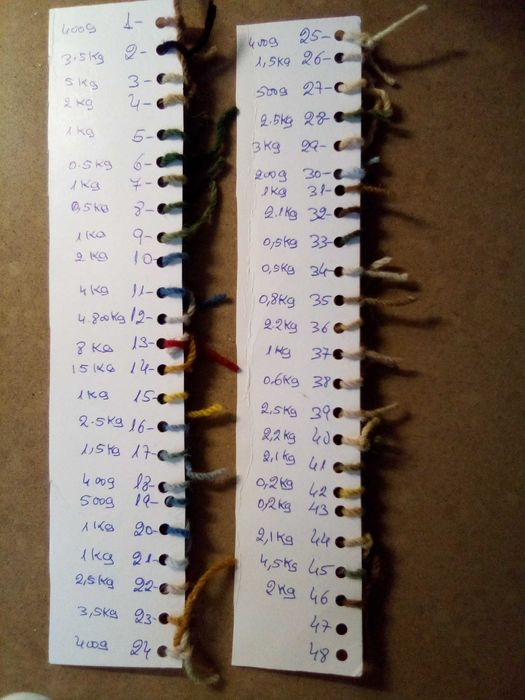 400g 1-
3.5kg 2-
5kg 3-
2kg 4-
1kg 5-
0.5kg 6-
1kg 7-
0,5kg 8-
1kg 9-
2kg 10-
4kg 11-
4.800kg 12-
8kg 13-
15kg 14-
1kg 15-
2.5kg 16-
1,5kg 17-
400g 18-
500g 19-
1kg 20-
1kg 21-
2,5kg 22-
3,5kg 23-
400g 24-
400g 25-
1,5kg 26-
500g 27-
2.5kg 28-
3kg 29-
200g 30-
1kg 31-
2.1kg 32-
0,5kg 33-
0,5kg 34-
0,8kg 35
2.2kg 36
1kg 37
0.6kg 38
2,5kg 39
2,2kg 40
2,1kg 41
0,2kg 42
0,2kg 43
2,1kg 44
4,5kg 45
2kg 46
47
48